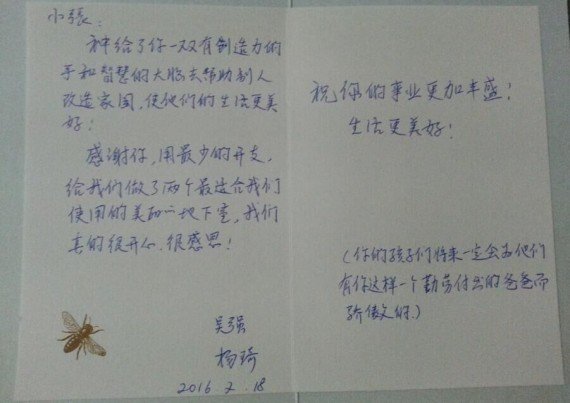 小張：
神给了你一双有制造力的
手和智慧的大脑去帮助别人
改造家园，使他们的生活更美
好！
感谢你，用最少的开支，
给我们做了两个最适合我们
使用的美丽的地下室，我们
真的很开心，很感恩！
吴强
杨琦
2016.2.18
祝你的事业更加丰盛！
生活更美好！
（你的孩子们将来一定会为他们
有你这样一个勤劳付出的爸爸而
骄傲的。）